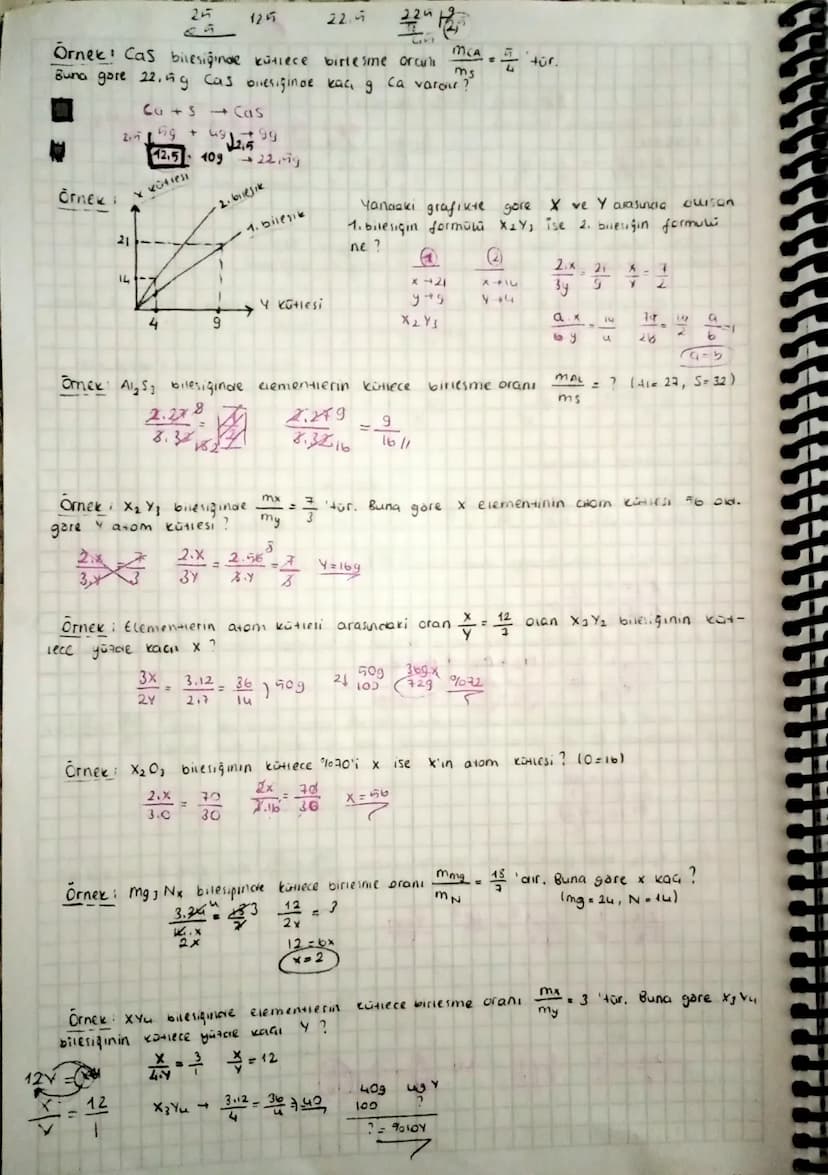 25 125 22.5
Örnek: CaS bileşiğinde kütlece birleşme oranı mCA/mS = 5/4 'tür.
Buna göre 22,5g CaS bileşiğinde kaç g Ca vardır?
Ca + S → CaS
2.5 5g + 4g → 9g
2,5
12,5 · 10g → 22,5g
Örnek:
X kütlesi
2. bileşik
1. bileşik
21
14
4 9 Y kütlesi
Yandaki grafikte göre X ve Y arasında oluşan
1. bileşiğin formülü X₂Y₃ ise 2. bileşiğin formülü
ne?
(1) (2)
x→21 x→14
y→9 y→4
X₂Y₃
2.x/3y = 21/9 x/y = 7/2
a.x/b.y = 14/4 7a/2b = 14/2 a/b = 1
a=b
Örnek: Al₂S₃ bileşiğinde elementlerin kütlece birleşme oranı mAL/mS = ? (Al=27, S=32)
2.27 9/3.32 16 = 9/16 //
Örnek: X₂Y₃ bileşiğinde mx/my = 7/3 'tür. Buna göre X elementinin atom kütlesi 56 old.
göre Y atom kütlesi?
2.x/3.y = 7/3 2.X/3Y = 2.56/3.Y = 7/3 Y=16g
Örnek: Elementlerin atom kütlesi arasındaki oran X/Y = 12/7 olan X₃Y₂ bileşiğinin küt-
lece yüzde kaçı X?
3X/2Y = 3.12/2.7 = 36/14 ) 50g 2↓ 50g 36g.x
100 72g %72
Örnek: X₂O₃ bileşiğinin kütlece %70'i x ise X'in atom kütlesi? (O=16)
2.X/3.O = 70/30 2x/3.16 = 70/30 x=56
Örnek: Mg₃Nx bileşiğinde kütlece birleşme oranı mMg/mN = 18/7 'dir. Buna göre x kaç?
(mg=24, N=14)
3.24/14.x = 18/7 12/2x = 3
2x 12=6x
x=2
Örnek: XY₄ bileşiğinde elementlerin kütlece birleşme oranı mx/my = 3 'tür. Buna göre X₃Y₄
bileşiğinin kütlece yüzde kaçı Y?
X/4.Y = 3/1 X/Y = 12
12Y = X
X/Y = 12/1 X₃Y₄ → 3.12/4 = 36/4 → 40 40g 4g Y
100 ?
? = %10Y